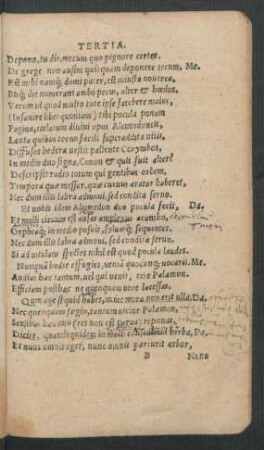 TERTIA.
Depono, tu dic, mecum quo pignore certes.
De grege non ausim quicquam deponere tecum, Me.
Est mihi namq; domi pater, est iniusta nouerca,
Bisq; die numerant ambo pecus, alter & hœdos.
Verum id quod multo tute ipse fatebere maius,
(Insanire libet quoniam) tibi pocula ponam
Fagina, cœlatum diuini opus Alcimedontis,
Lenta quibus torno facili superaddita uitis,
Diffusos hedera uestit pallente Corymbos,
In medio duo signa, Conon & quis fuit alter?
Descripsit radio totum qui gentibus orbem,
Tempora quæ messor, quæ curuus arator haberet,
Nec dum illis labra admoui, sed condita seruo.
Et nobis idem Alcimedon duo pocula fecit, Da.
Et molli circum est ansas amplexus acantho,
Orpheaq; in medio posuit, syluasq; sequentes.
Nec dum illis labra admoui, sed condita seruo.
Si ad uitulam spectes nihil est quod pocula laudes.
Nunquã hodie effugies, ueniã quocunq; uocaris. Me.
Audiat hæc tantum, uel qui uenit, ecce Palæmon.
Efficiam posthac ne quenquam uoce lacessas.
Quin age si quid habes, in me mora non erit ulla, Da.
Nec quenquam fugio, tantum uicine Palæmon,
Sensibus hæc imis (res non est parua) reponas.
Dicite, quandoquidem in molli consedimus herba, Pa.
Et nunc omnis ager, nunc omnis parturit arbor,
B Nunc